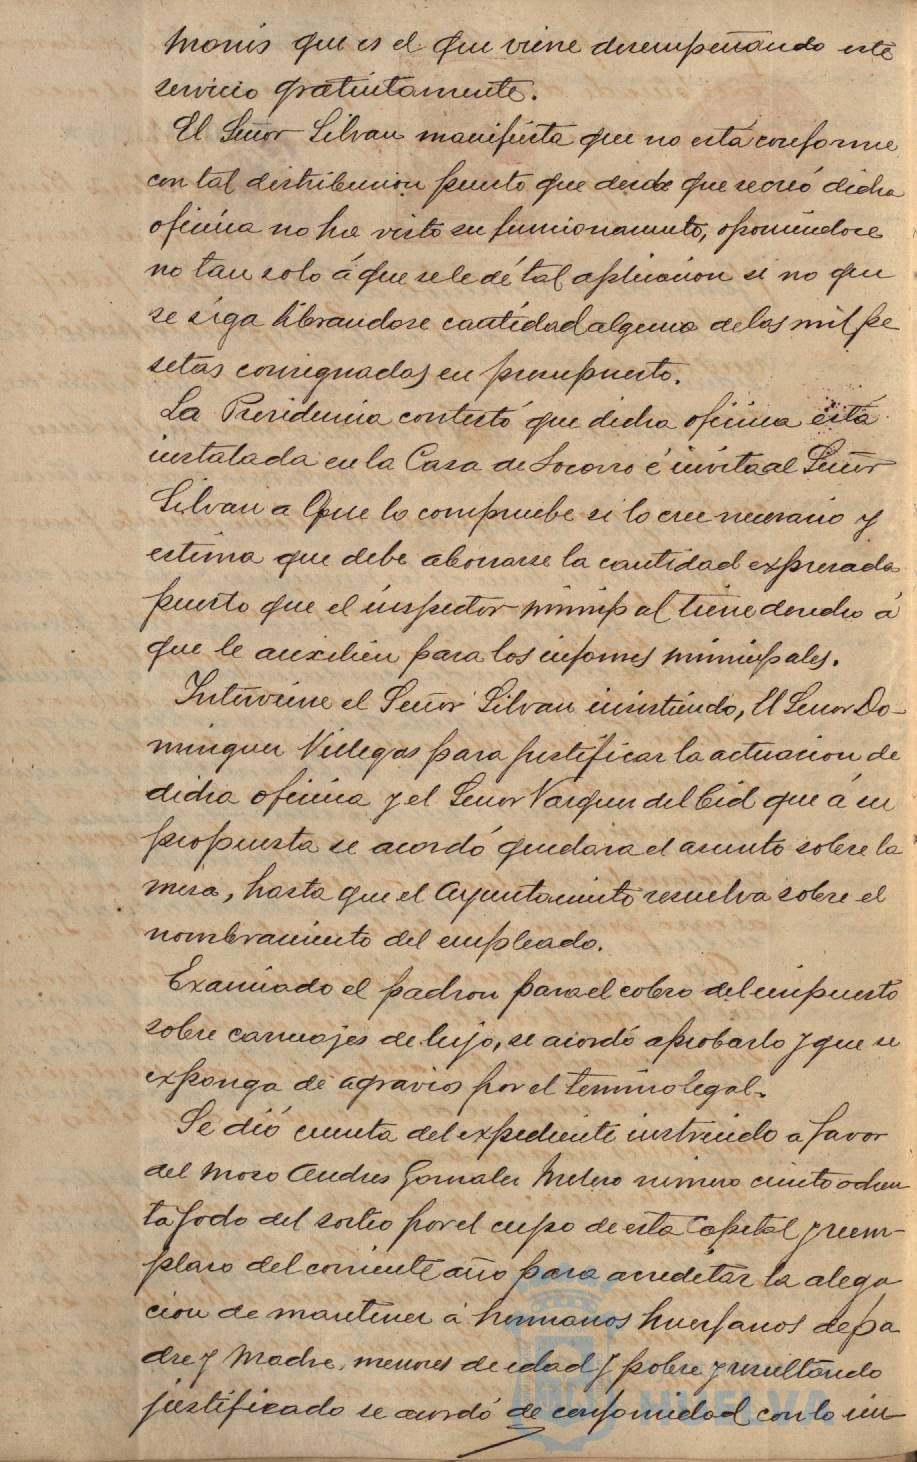 Monís que es el que viene desempeñando este
servicio gratuitamente.
El Señor Silvan manifiesta que no está conforme
con tal distribucion puesto que desde que se creó dicha
oficina no ha visto su funcionamiento, oponiendose
no tan solo á que se le dé tal aplicacion si no que
se siga librandose cantidad alguna de las mil pe
setas consignadas en presupuesto.
La Presidencia contestó que dicha oficina está
instalada en la Casa de Socorro é invita al Señor
Silvan a que lo compruebe si lo cree necesario y
estima que debe abonarse la cantidad expresada
puesto que el inspector municipal tiene derecho á
que le auxilien para los informes municipales.
Interviene el Señor Silvan insistiendo, El Señor Do-
minguez Villegas para justificar la actuacion de
dicha oficina y el Señor Vazquez del Cid que á su
propuesta se acordó quedara el asunto sobre la
mesa, hasta que el Ayuntamiento resuelva sobre el
nombramiento del empleado.
Examinado el padron para el cobro del impuesto
sobre carruajes de lujo, se acordó aprobarlo y que se
exponga de agravios por el termino legal.
Se dió cuenta del expediente instruido a favor
del mozo Andres Gonzalez Melero número ciento ochen
ta y ocho del sorteo por el cupo de esta Capital y reem-
plazo del corriente año para acreditar la alega
cion de mantener á hermanos huerfanos de pa
dre y Madre, menores de edad y pobre y resultando
justificado se acordó de conformidad con lo in
HUELVA